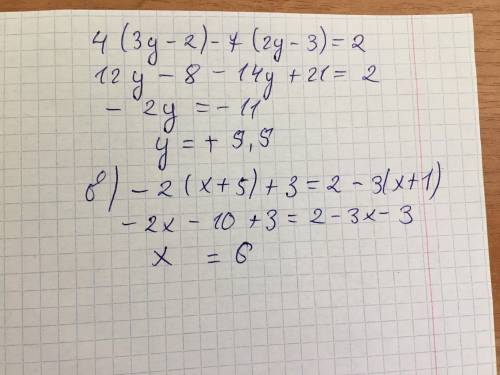 4 (3y - 2) - 7 (2y - 3) = 2
12y - 8 - 14y + 21 = 2
- 2y = - 11
y = + 5,5
б) - 2 (x + 5) + 3 = 2 - 3(x + 1)
- 2x - 10 + 3 = 2 - 3x - 3
x = 6